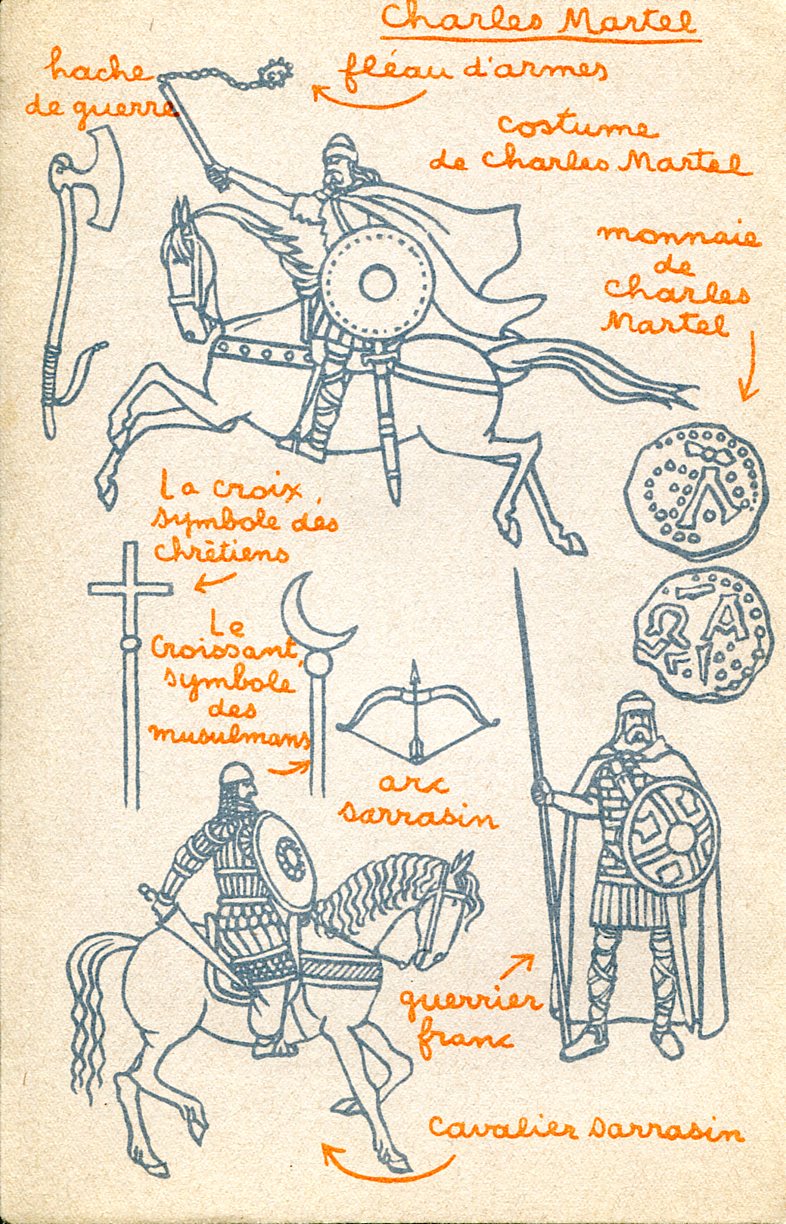 Charles Martel
hache
de guerre
fléau d'armes
costume
de Charles Martel
monnaie
de
Charles
Martel
La croix,
symbole des
chrétiens
Le
Croissant,
symbole
des
musulmans
arc
sarrasin
guerrier
franc
cavalier sarrasin